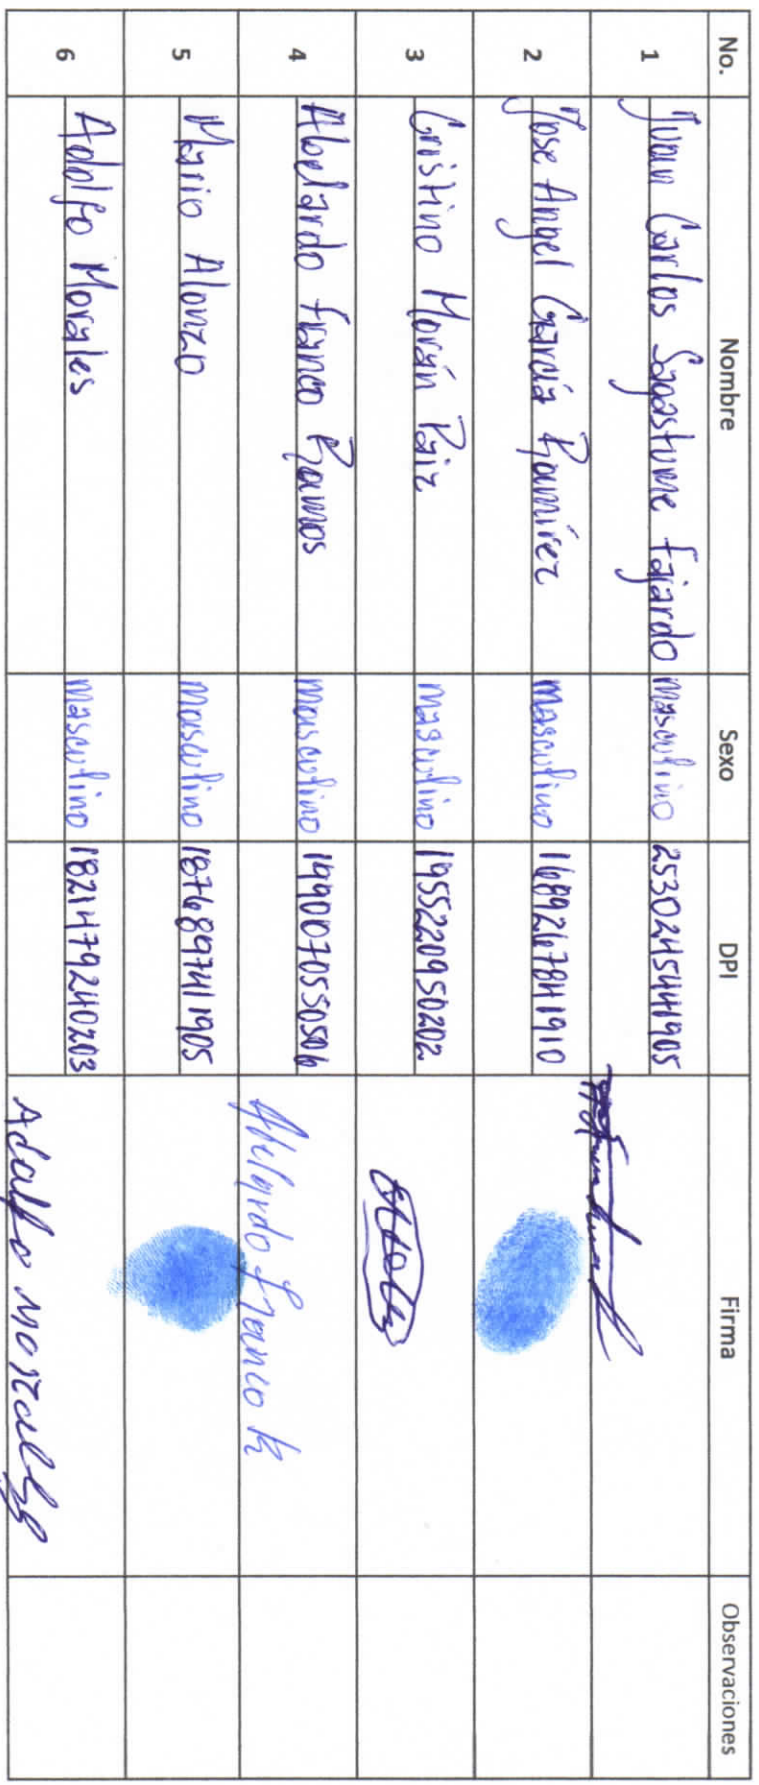 No. Nombre Sexo DPI Firma Observaciones
1 Juan Carlos Sagastume Fajardo masculino 2530245441905
2 Jose Angel García Ramírez masculino 1689267841910
3 Cristino Morán Paiz masculino 1955220950202
4 Abelardo Franco Ramos masculino 1990070550506 Abelardo Franco R
5 Mario Alonzo masculino 1876897411905
6 Adolfo Morales masculino 1821479240203 Adolfo Morales